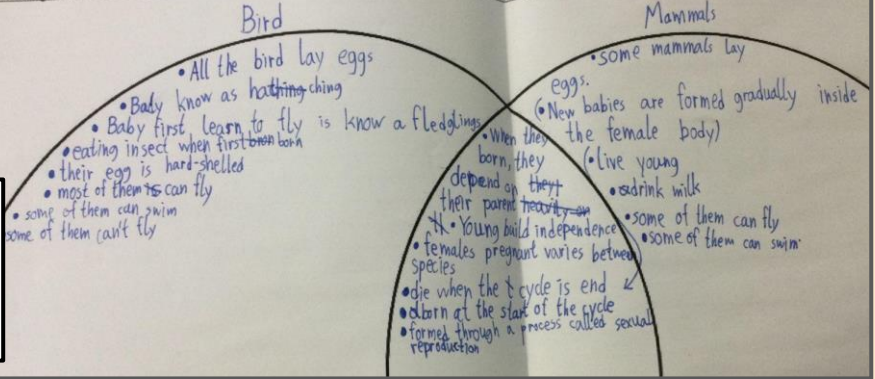 Bird
• All the bird lay eggs
• Bady know as hathing ching
• Baby first learn to fly is know a fledglings
• eating insect when first bron born
• their egg is hard-shelled
• most of them is can fly
• some of them can swim
some of them can't fly
• When they
born, they
depend on they
their parent heavily on
th • Young build independence
• females pregnant varies between
species
• die when the t cycle is end
• born at the start of the cycle
• formed through a process called sexual
reproduction
Mammals
• some mammals lay
eggs.
(• New babies are formed gradually inside
the female body)
(• Live young
• drink milk
• some of them can fly
• some of them can swim